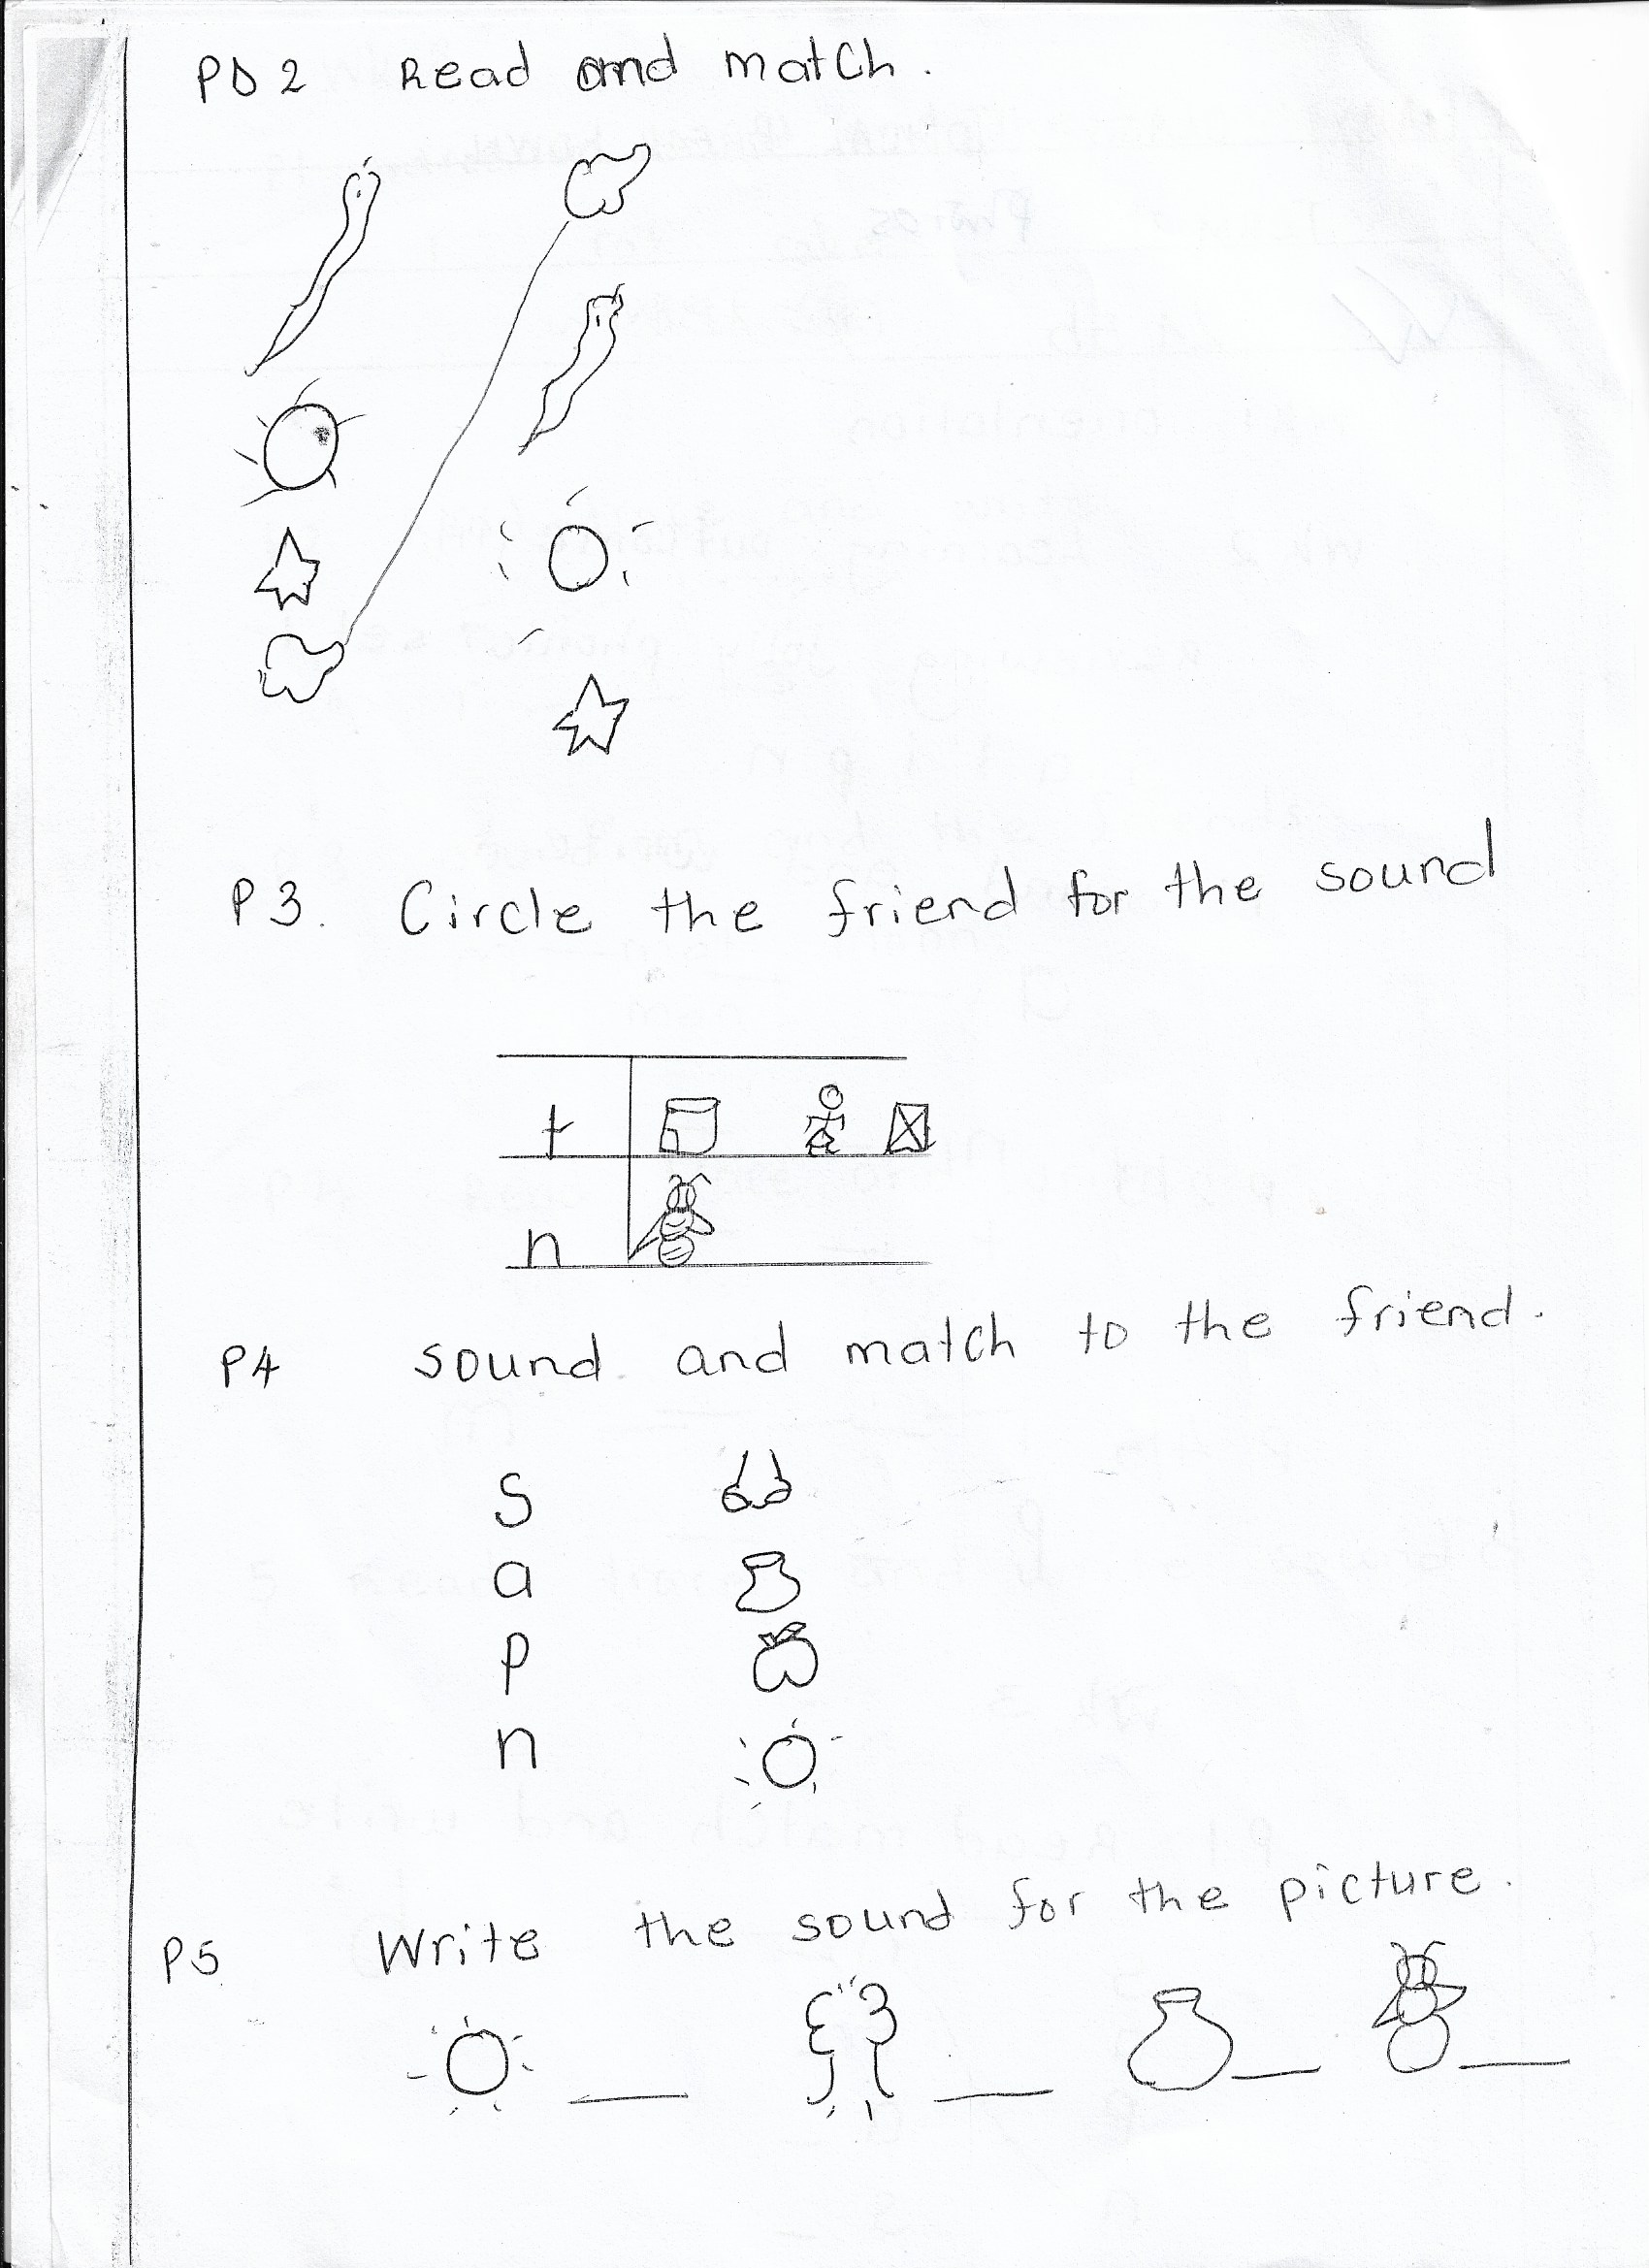 PD 2 Read and match.
P3. Circle the friend for the sound
t
n
P4 sound and match to the friend.
s
a
p
n
P5 Write the sound for the picture.